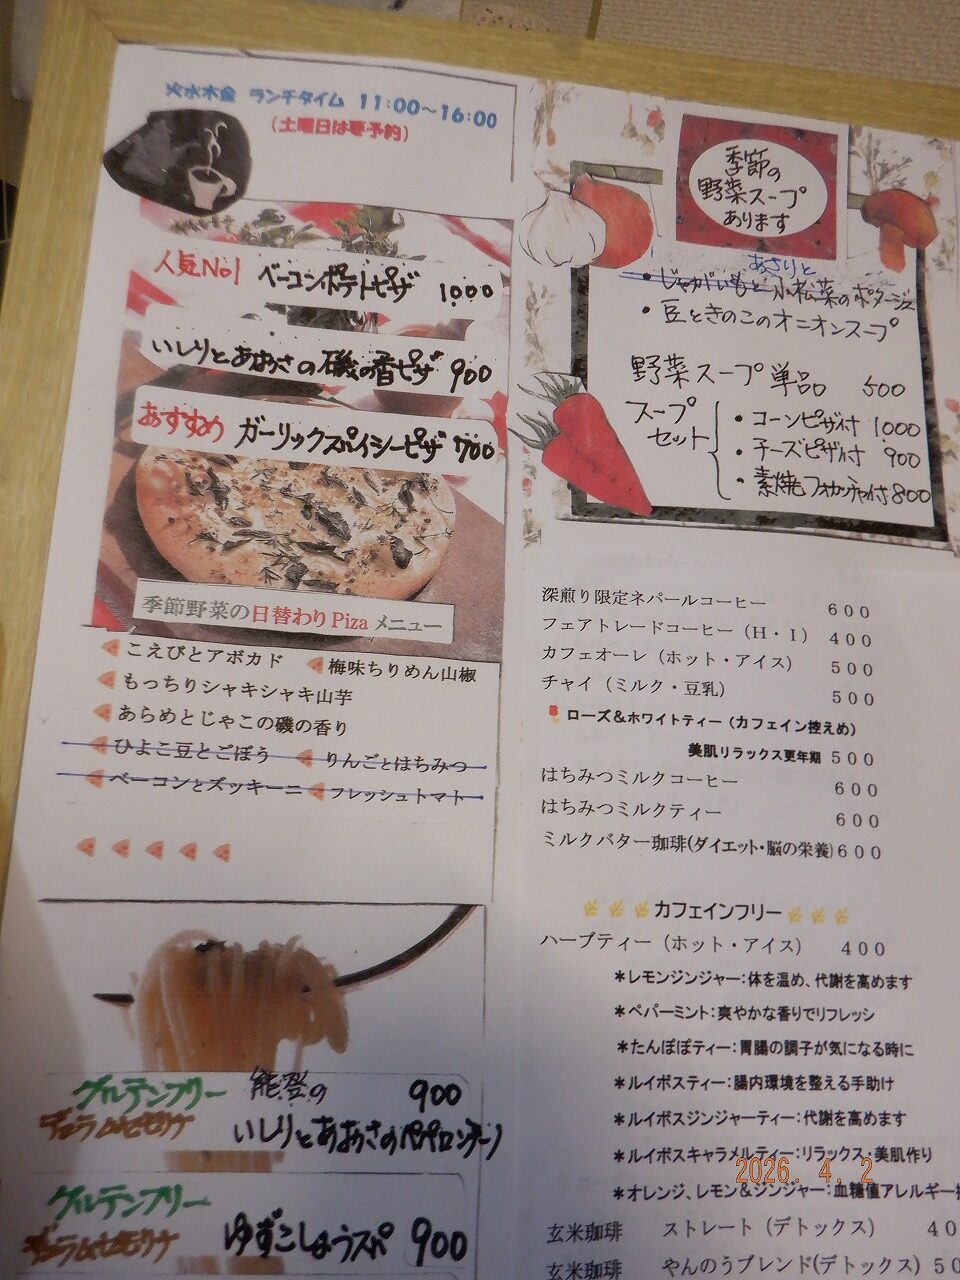 火水木金 ランチタイム 11:00～16:00
(土曜日は要予約)
人気No1 ベーコンポテトピザ 1000
いしりとあおさの磯の香ピザ 900
おすすめ ガーリックスパイシーピザ 700
季節野菜の日替わりPizaメニュー
こえびとアボカド 梅味ちりめん山椒
もっちりシャキシャキ山芋
あらめとじゃこの磯の香り
ひよこ豆とごぼう りんごとはちみつ
ベーコンとズッキーニ フレッシュトマト
グルテンフリー 能登の 900
いしりとあおさのペペロンチーノ
グルテンフリー
ゆずこしょうスパ 900
季節の
野菜スープ
あります
あさりと
・じゃがいもと小松菜のポタージュ
・豆ときのこのオニオンスープ
野菜スープ単品 500
スープ
セット
・コーンピザ付 1000
・チーズピザ付 900
・素焼フォカッチャ付 800
深煎り限定ネパールコーヒー 600
フェアトレードコーヒー（H・I） 400
カフェオーレ（ホット・アイス） 500
チャイ（ミルク・豆乳） 500
ローズ＆ホワイトティー（カフェイン控えめ）
美肌リラックス更年期 500
はちみつミルクコーヒー 600
はちみつミルクティー 600
ミルクバター珈琲(ダイエット・脳の栄養) 600
カフェインフリー
ハーブティー（ホット・アイス） 400
＊レモンジンジャー：体を温め、代謝を高めます
＊ペパーミント：爽やかな香りでリフレッシ
＊たんぽぽティー：胃腸の調子が気になる時に
＊ルイボスティー：腸内環境を整える手助け
＊ルイボスジンジャーティー：代謝を高めます
＊ルイボスキャラメルティー：リラックス・美肌作り
＊オレンジ、レモン＆ジンジャー：血糖値アレルギー
玄米珈琲 ストレート（デトックス） 40
玄米珈琲 やんのうブレンド(デトックス) 50
2026. 4. 2